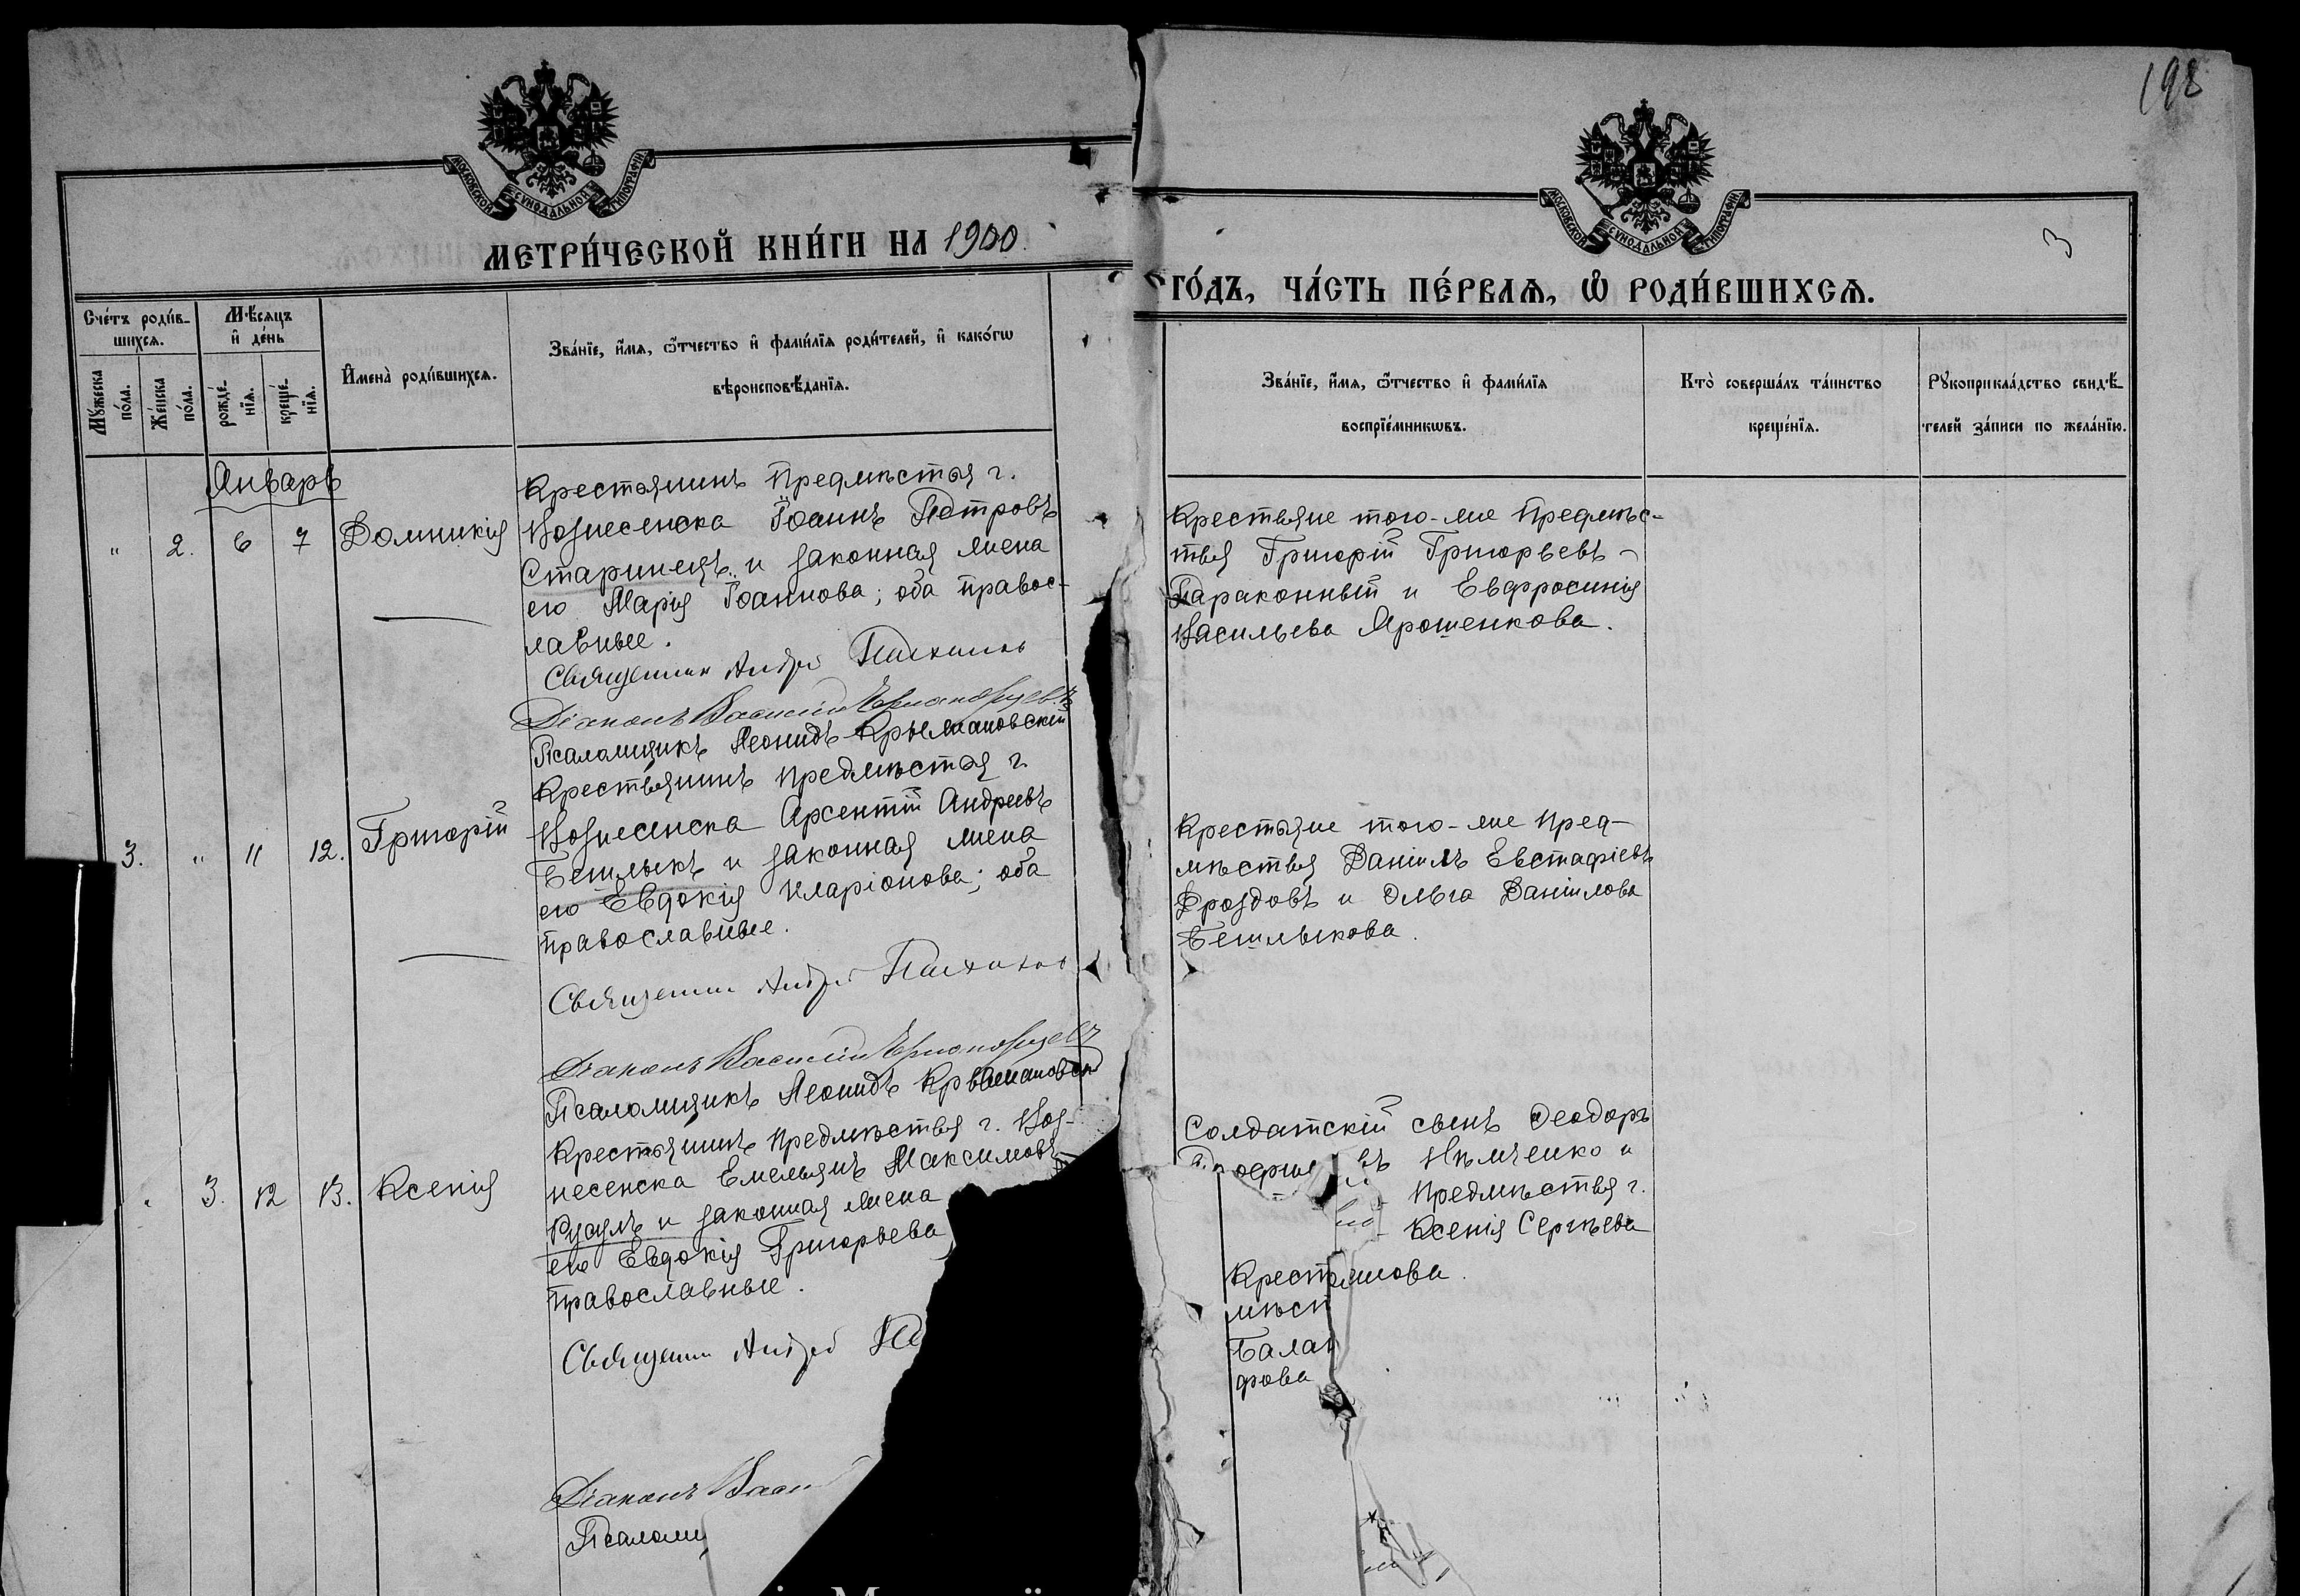 198
3
МОСКОВСКОЙ СѴНОДАЛЬНОЙ ТИПОГРАФІИ
МОСКОВСКОЙ СѴНОДАЛЬНОЙ ТИПОГРАФІИ
МЕТРИ́ЧЕСКОЙ КНИ́ГИ НА 1900
ГО́ДЪ, ЧА́СТЬ ПЕ́РВАѦ, Ѿ РОДИ́ВШИХСѦ.
Сче́тъ роди́в-
шихсѧ.
Мѣ́сѧцъ
и҆ де́нь
Мꙋ́жеска по́ла.
Же́нска по́ла.
рожде́-нїѧ.
креще́-нїѧ.
И҆мена̀ роди́вшихсѧ.
Зва́нїе, и҆́мѧ, ѻ҆́тчество и҆ фами́лїѧ роди́телей, и҆ како́гѡ
вѣроисповѣ́данїѧ.
Зва́нїе, и҆́мѧ, ѻ҆́тчество и҆ фами́лїѧ
воспрїе́мникѡвъ.
Кто̀ соверша́лъ та́инство
креще́нїѧ.
Рꙋкоприкла́дство свидѣ́-
телей за́писи по жела́нїю.
Январь
" 2. 6 7 Домникія
Крестьянинъ Предмѣстья г.
Вознесенска Іоаннъ Петровъ
Старинецъ и законная жена
его Марія Іоаннова; оба правос-
лавные.
Священник Андрей
Діаконъ Василій
Псаломщикъ Леонидъ Крыжановскій
Крестьяне того-же Предмѣс-
тья Григорій Григорьевъ
Параконный и Евфросинія
Васильева Ярошенкова.
3. " 11 12. Григорій
Крестьянинъ Предмѣстья г.
Вознесенска Арсентій Андреевъ
Бешлыкъ и законная жена
его Евдокія Иларіонова; оба
православные.
Священник Андрей
Діаконъ Василій
Псаломщикъ Леонидъ Крыжановск
Крестьяне того-же Пред-
мѣстья Даніилъ Евстафіевъ
Дроздовъ и Ольга Даніилова
Бешлыкова.
" 3. 12 13. Ксенія
Крестьянинъ Предмѣстья г. Воз-
несенска Емельянъ Максимовъ
Русулъ и законная жена
его Евдокія Григорьева
православные.
Священник Андрей
Діаконъ Васи
Псаломщ
Солдатскій сынъ Ѳеодоръ
въ Нѣмченко и
Предмѣстья г.
Ксенія Сергѣева
Крест
мѣст
Балан
рова